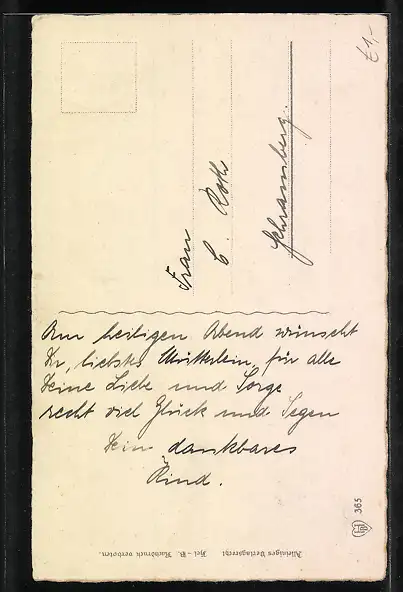 Frau
C. Roth
Schramberg.
Am heiligen Abend wünscht
Dir, liebstes Mütterlein, für alle
Deine Liebe und Sorge
recht viel Glück und Segen
Dein dankbares
Kind.
Alleiniges Verlagsrecht Hei-B. Nachdruck verboten.
365
€1,-